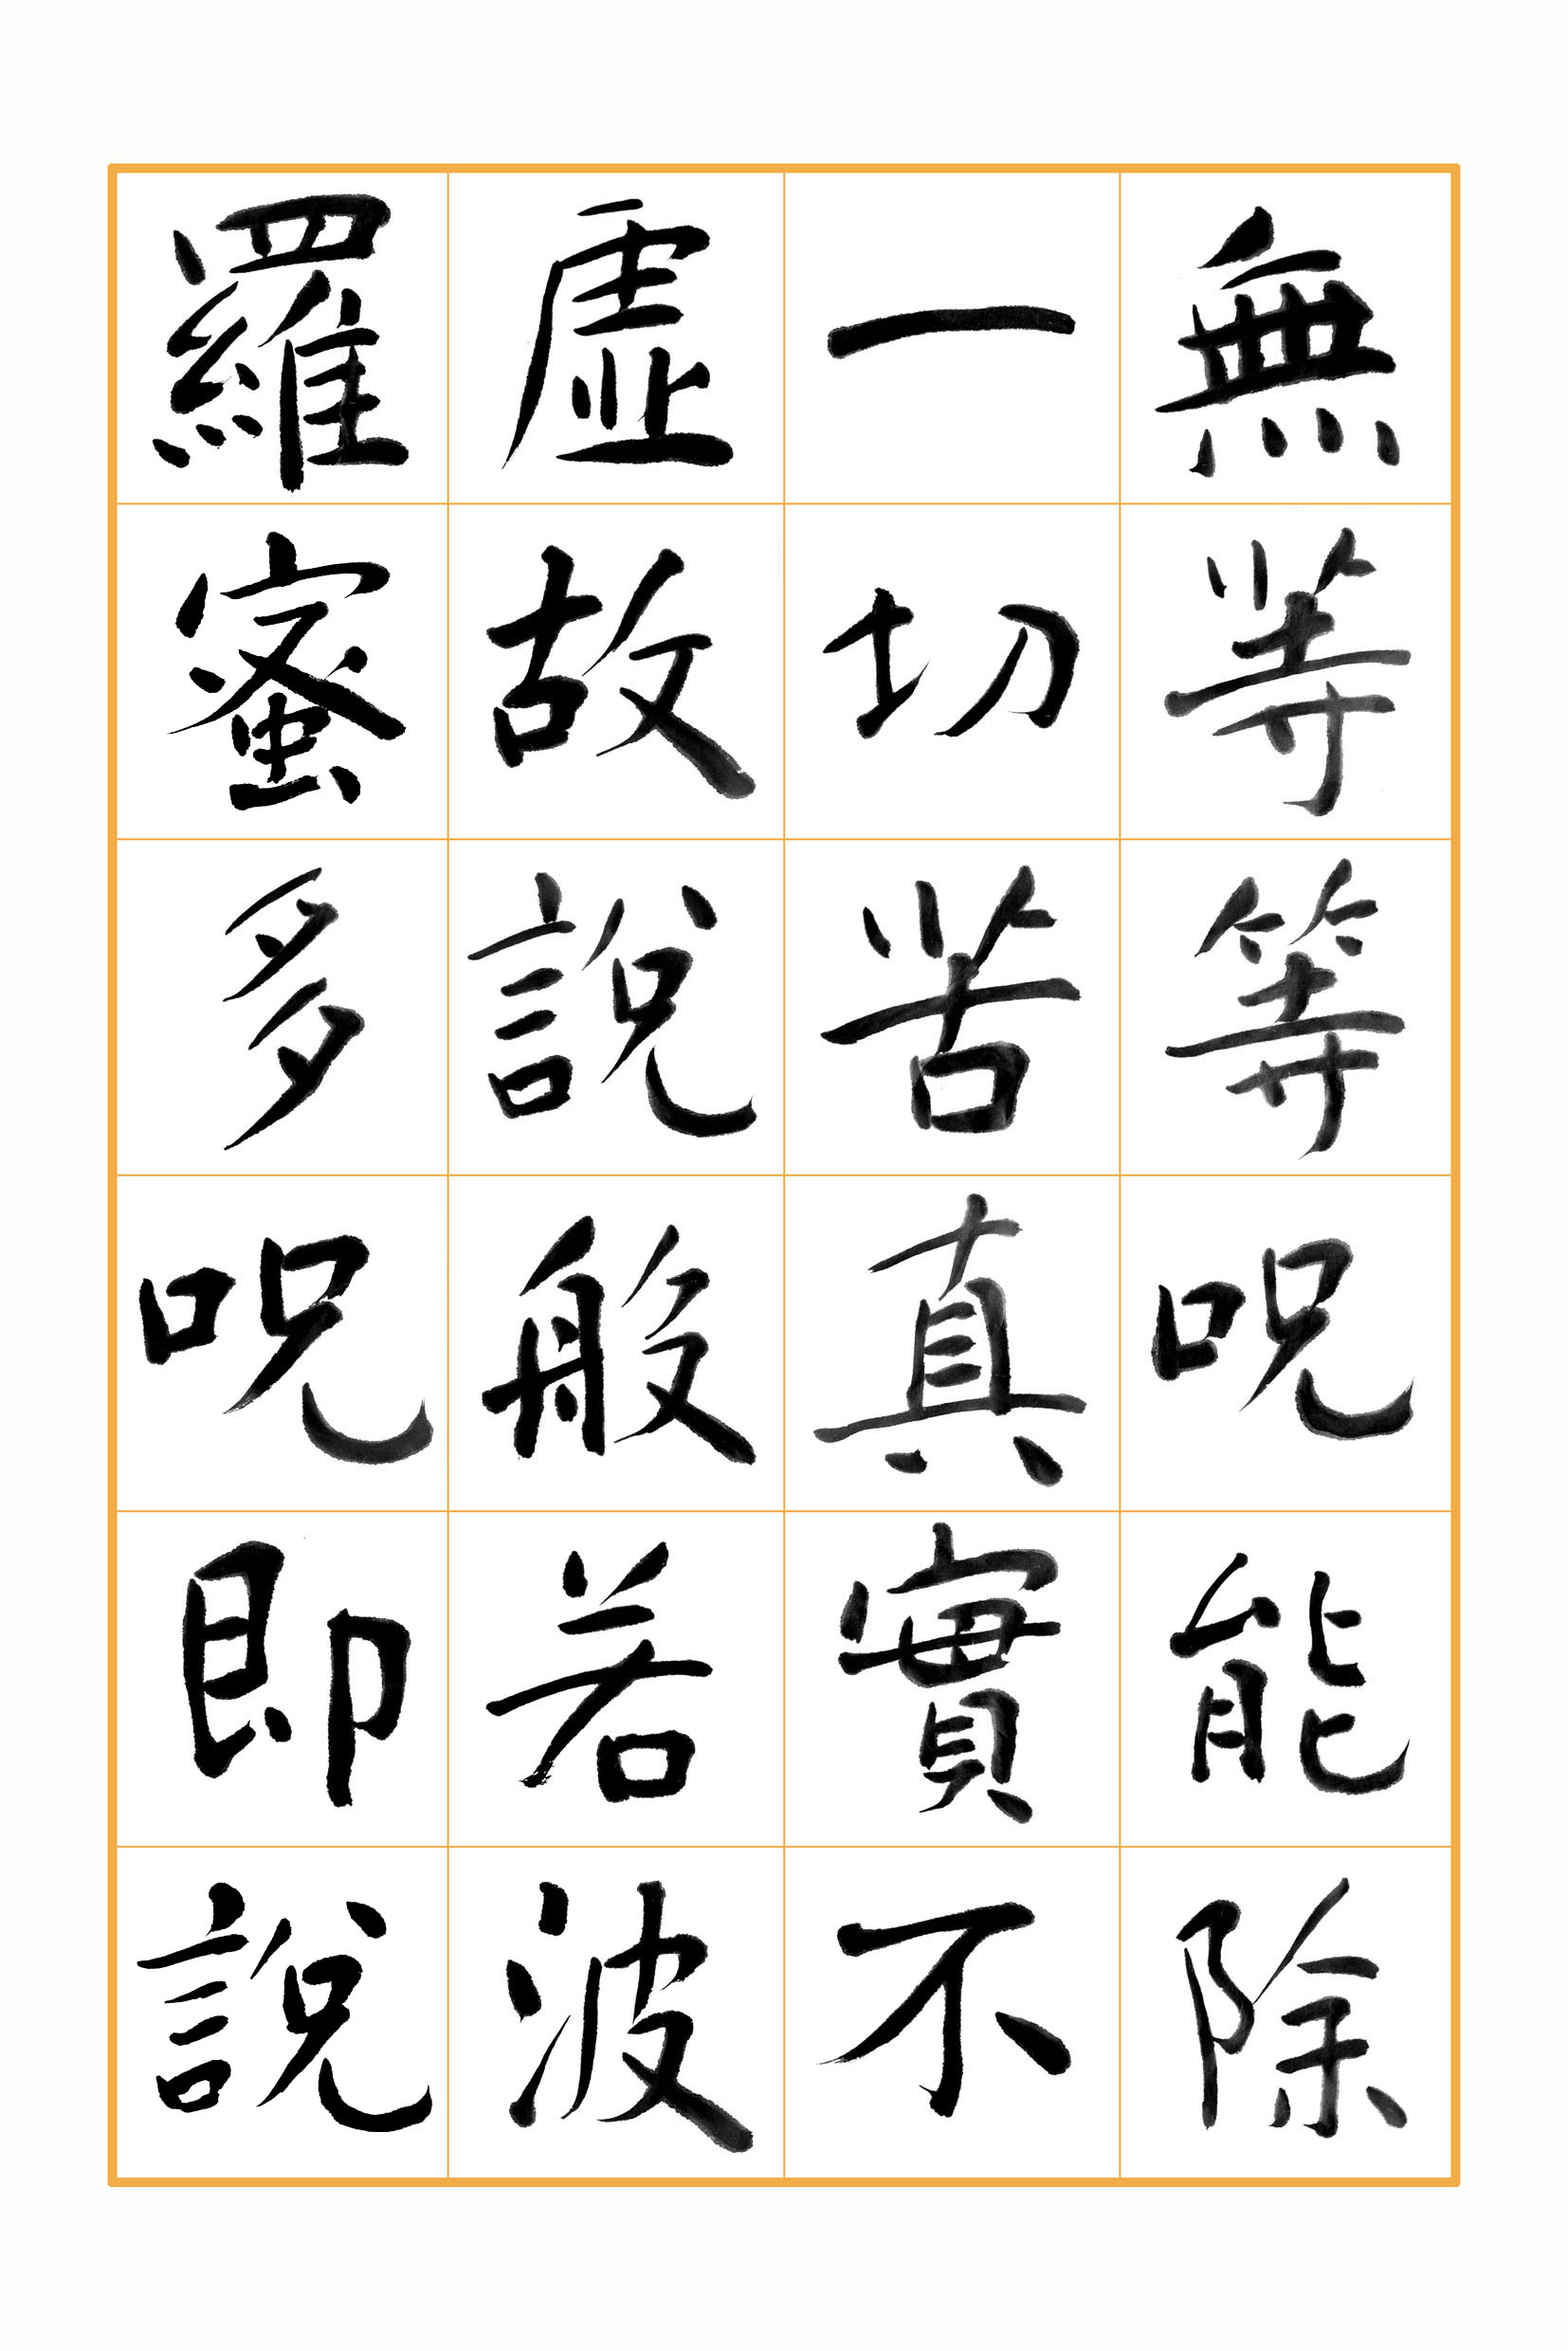 無等等呪能除
一切苦真實不
虛故說般若波
羅蜜多呪即說